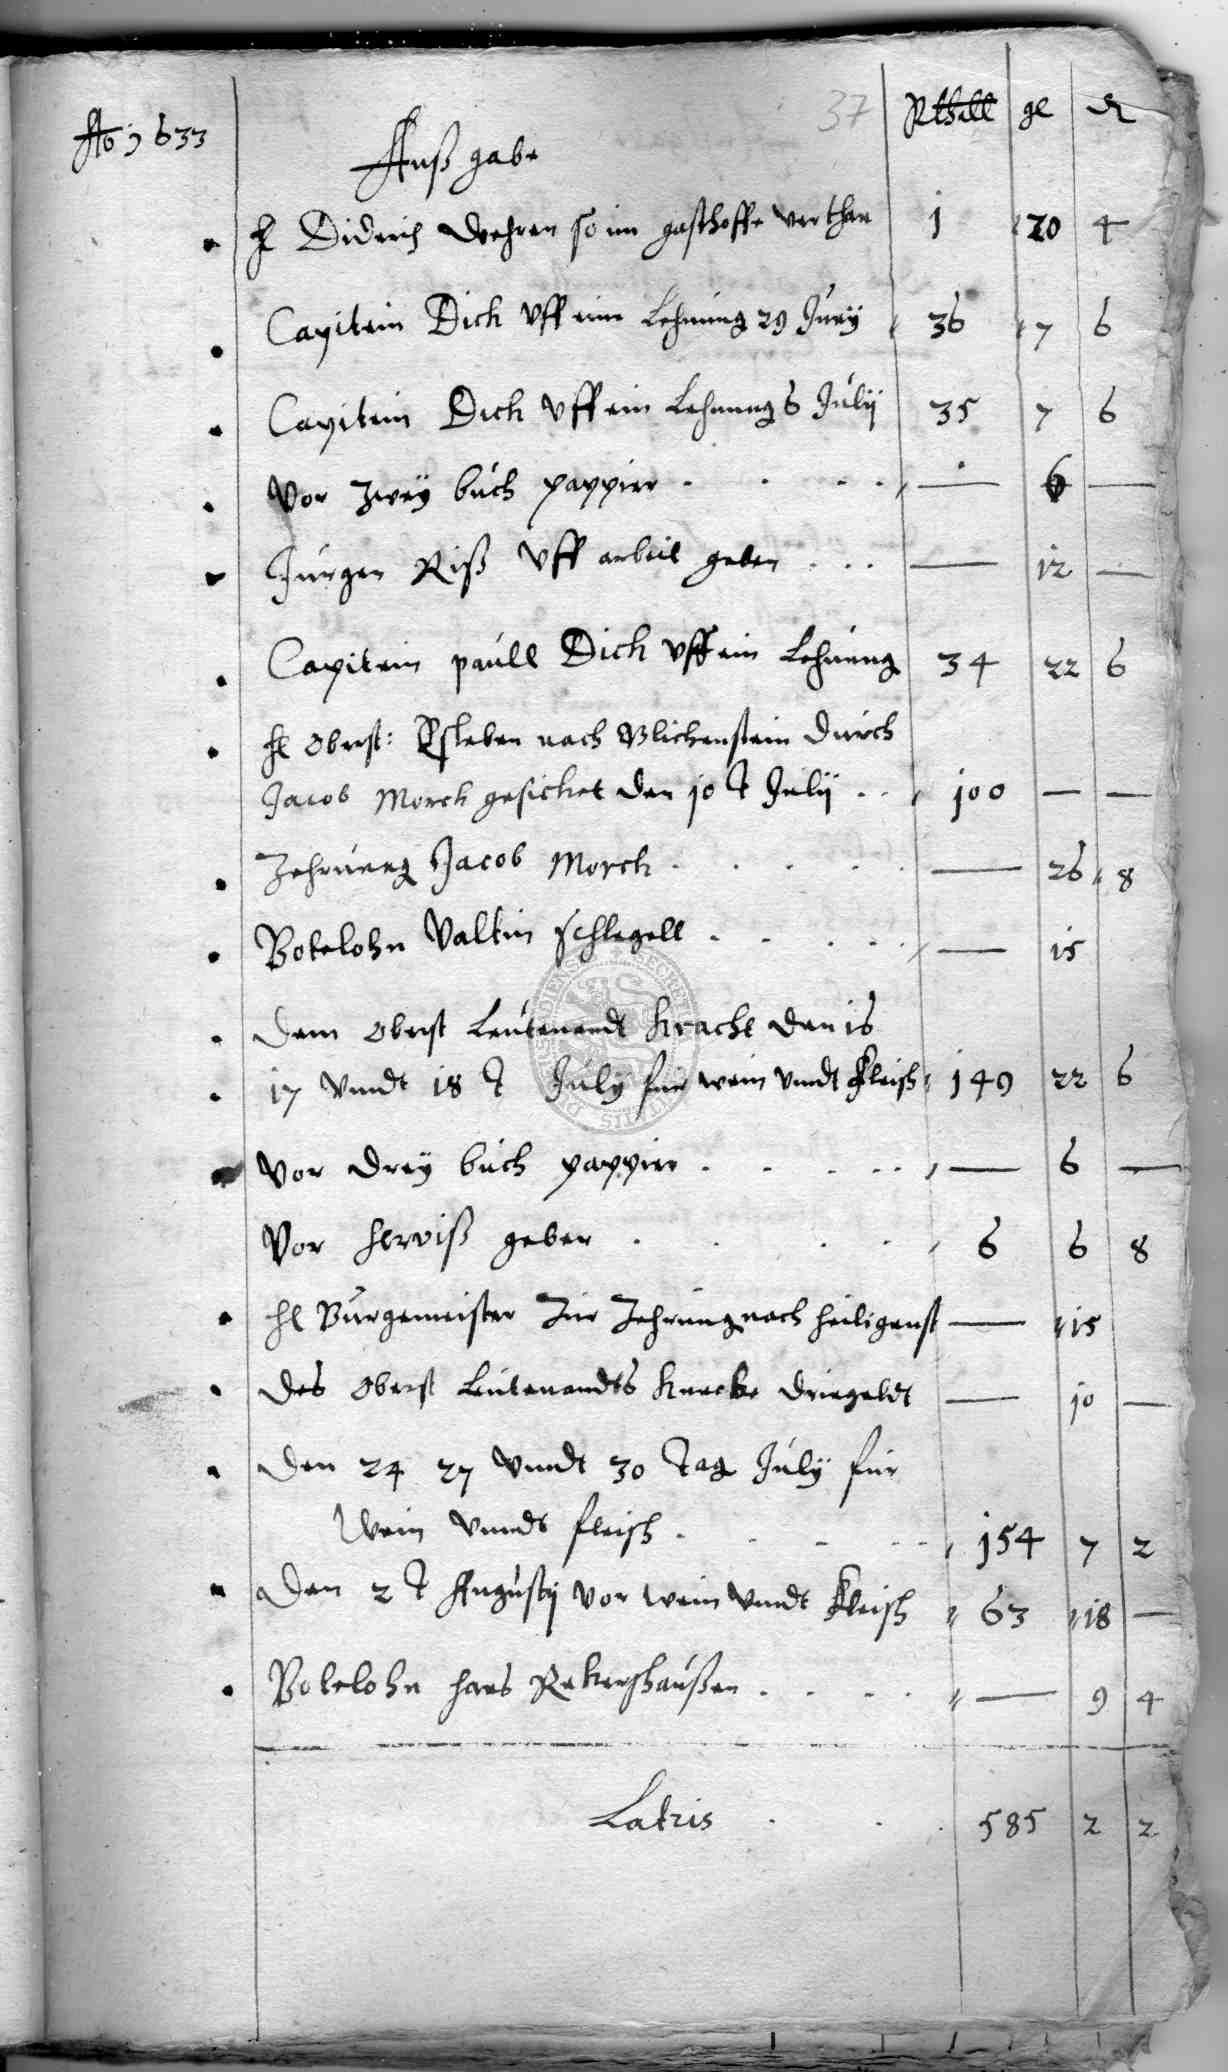 Ao 1633
37
Rthall gl d
Außgabe
H Diderich Wehren so im gasthoffe verthan 1 20 4
Capitein Dick vff ein Lehnung 29 Juny 36 7 6
Capitein Dick vff ein Lehnung 6 Julij 35 7 6
Vor Zwey buch pappier . . . . — 6 —
Jurgen Riß vff arbeit geben . . . — 12 —
Capitein paull Dick vff ein Lehnung 34 22 6
H Oberst: Esleben nach Blichenstein durch
Jacob Morck geschicket den 10 t Julij . . 100 — —
Zehrung Jacob Morck . . . . — 26 8
Botelohn Valtin schlegell . . . . — 15
Dem Oberst Leutenandt Kracht den 16
17 vnndt 18 t July fur wein vnndt fleisch 149 22 6
Vor drey buch pappier . . . . — 6 —
Vor serviß geben . . . . 6 6 8
H Burgemeister Zur Zehrung nach heiligenst — 15
des Oberst Leutenandts Knecke dringeldt — 10 —
Den 24 27 vnndt 30 tag July fur
Wein vnndt fleisch . . . . 154 7 2
Den 2 t Augustij vor wein vnndt fleisch 63 18 —
Botelohn hans Rekershaußen . . . . — 9 4
Latris . . . 585 2 2